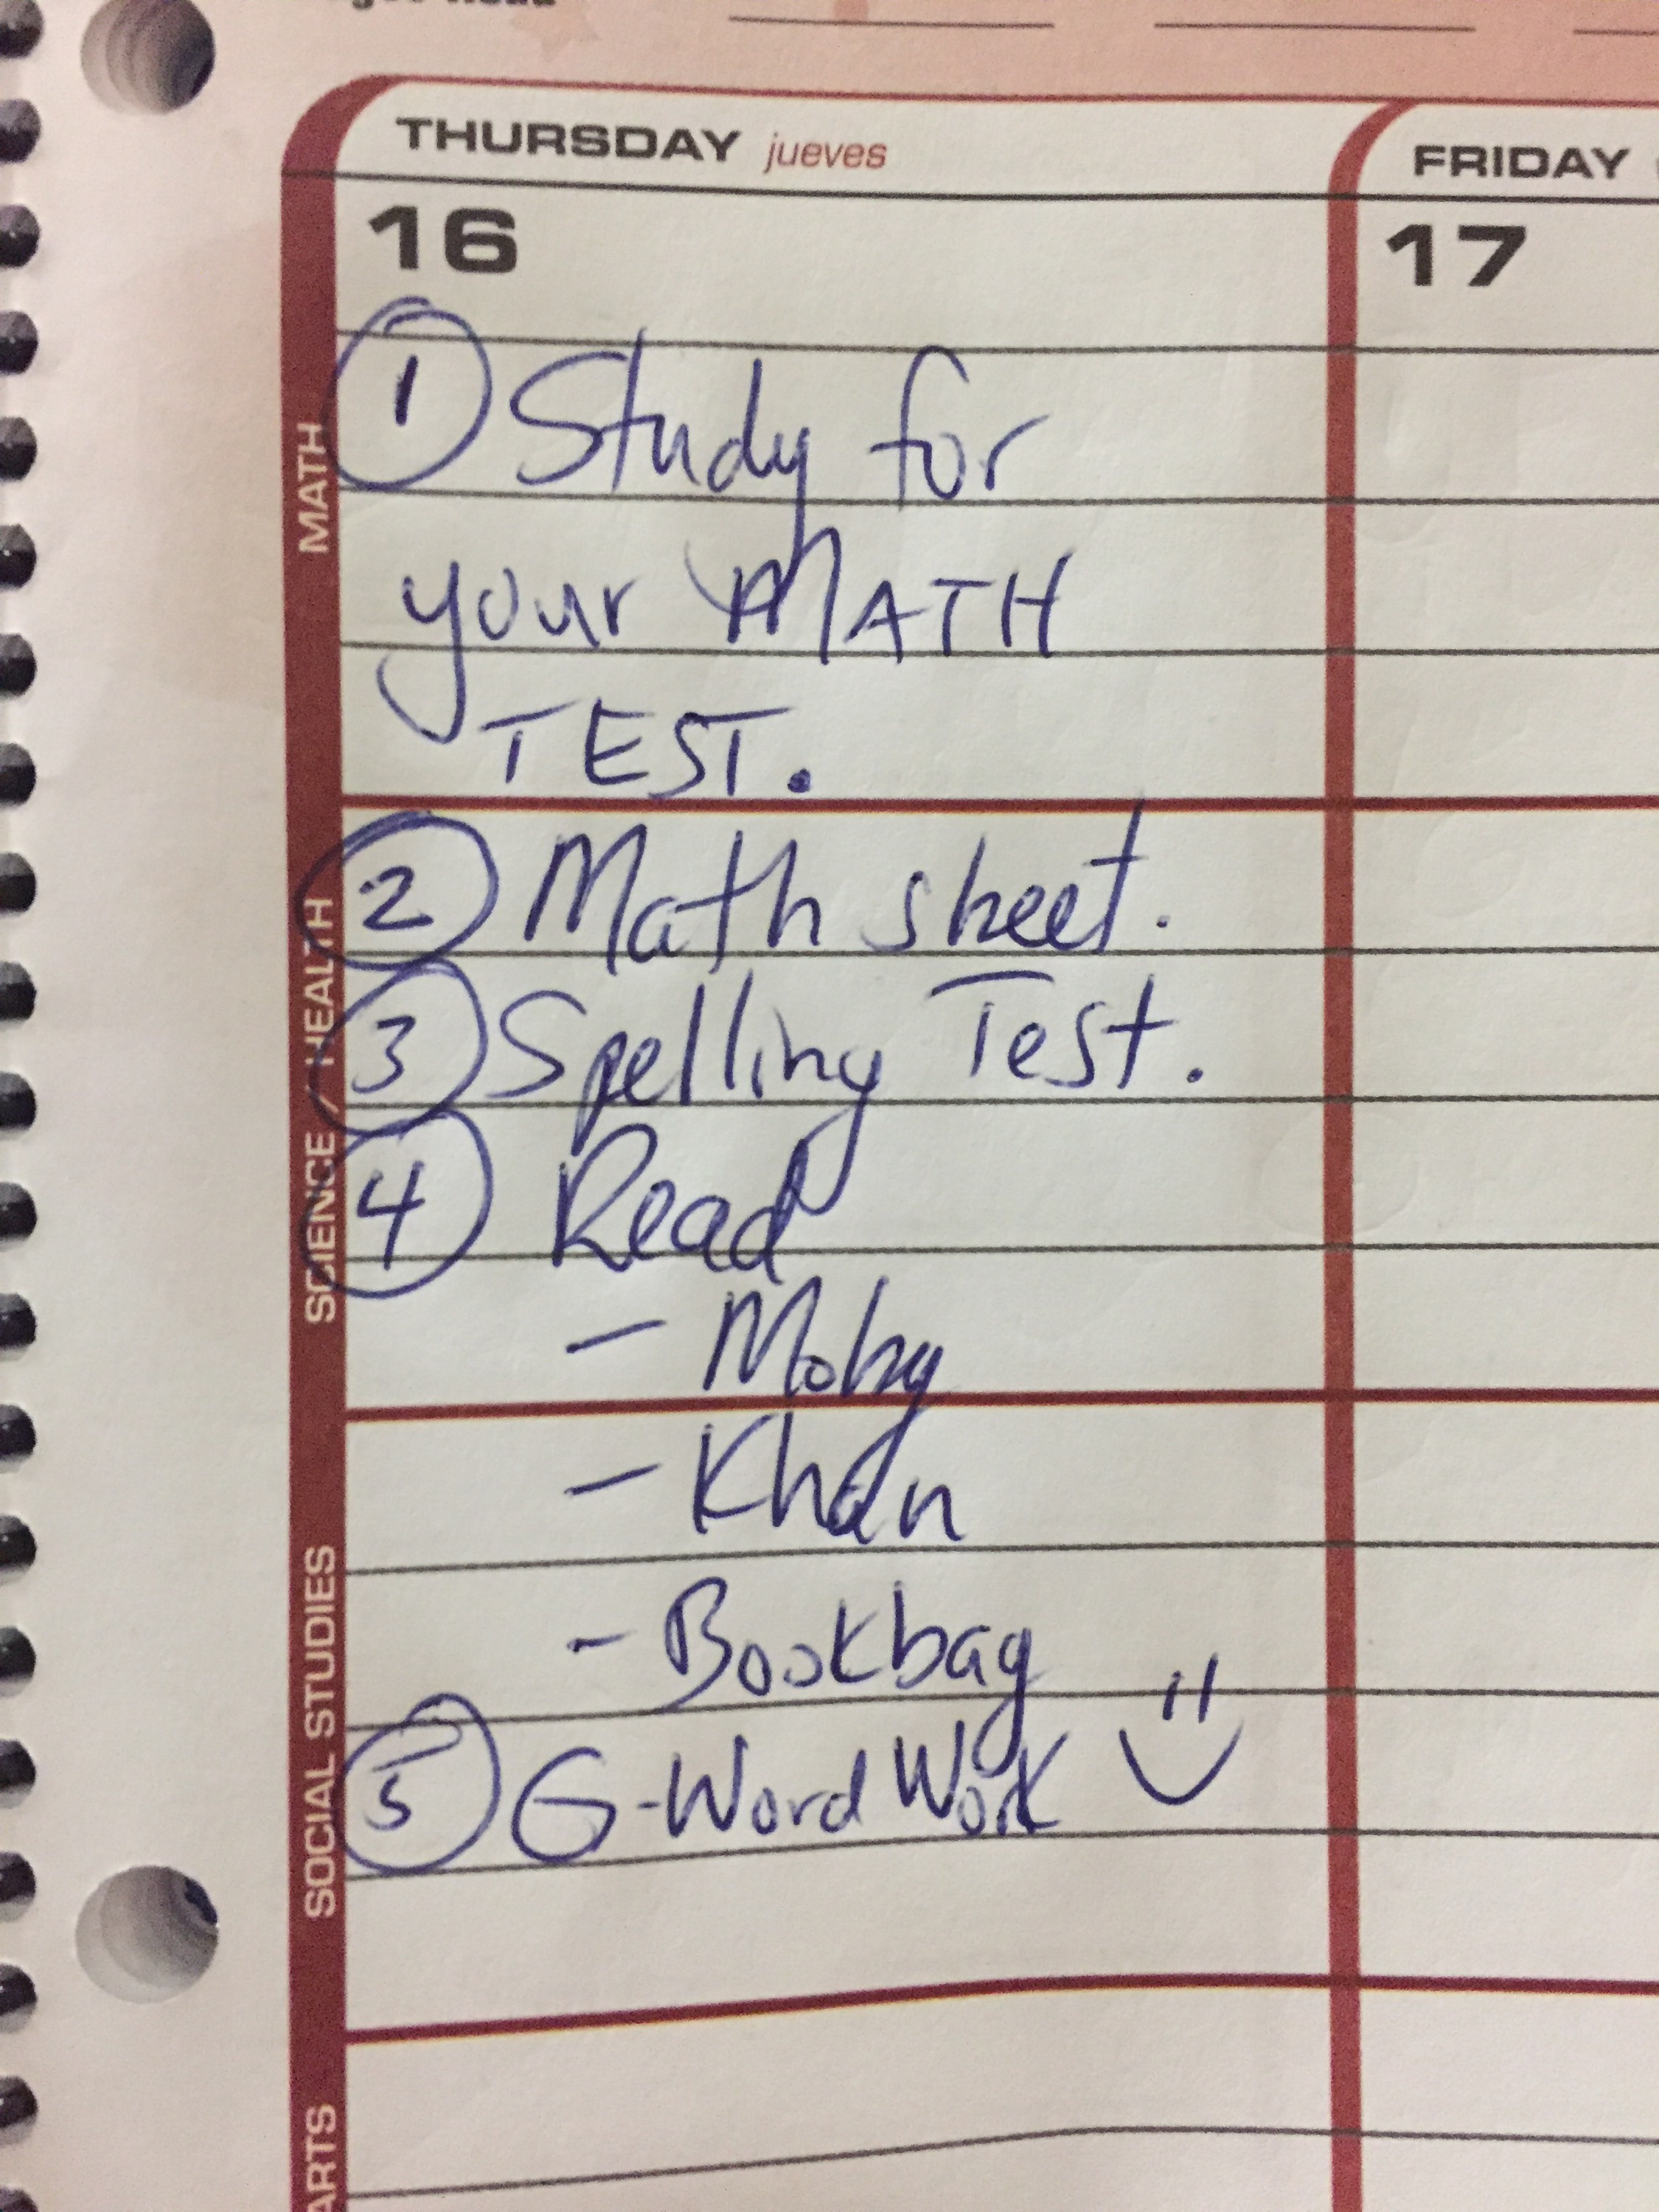 THURSDAY jueves
FRIDAY
16
17
MATH
① Study for
your MATH
TEST.
SCIENCE / HEALTH
② Math sheet.
③ Spelling Test.
④ Read
- Moby
- Khan
SOCIAL STUDIES
- Bookbag
⑤ G-Word Work
ARTS